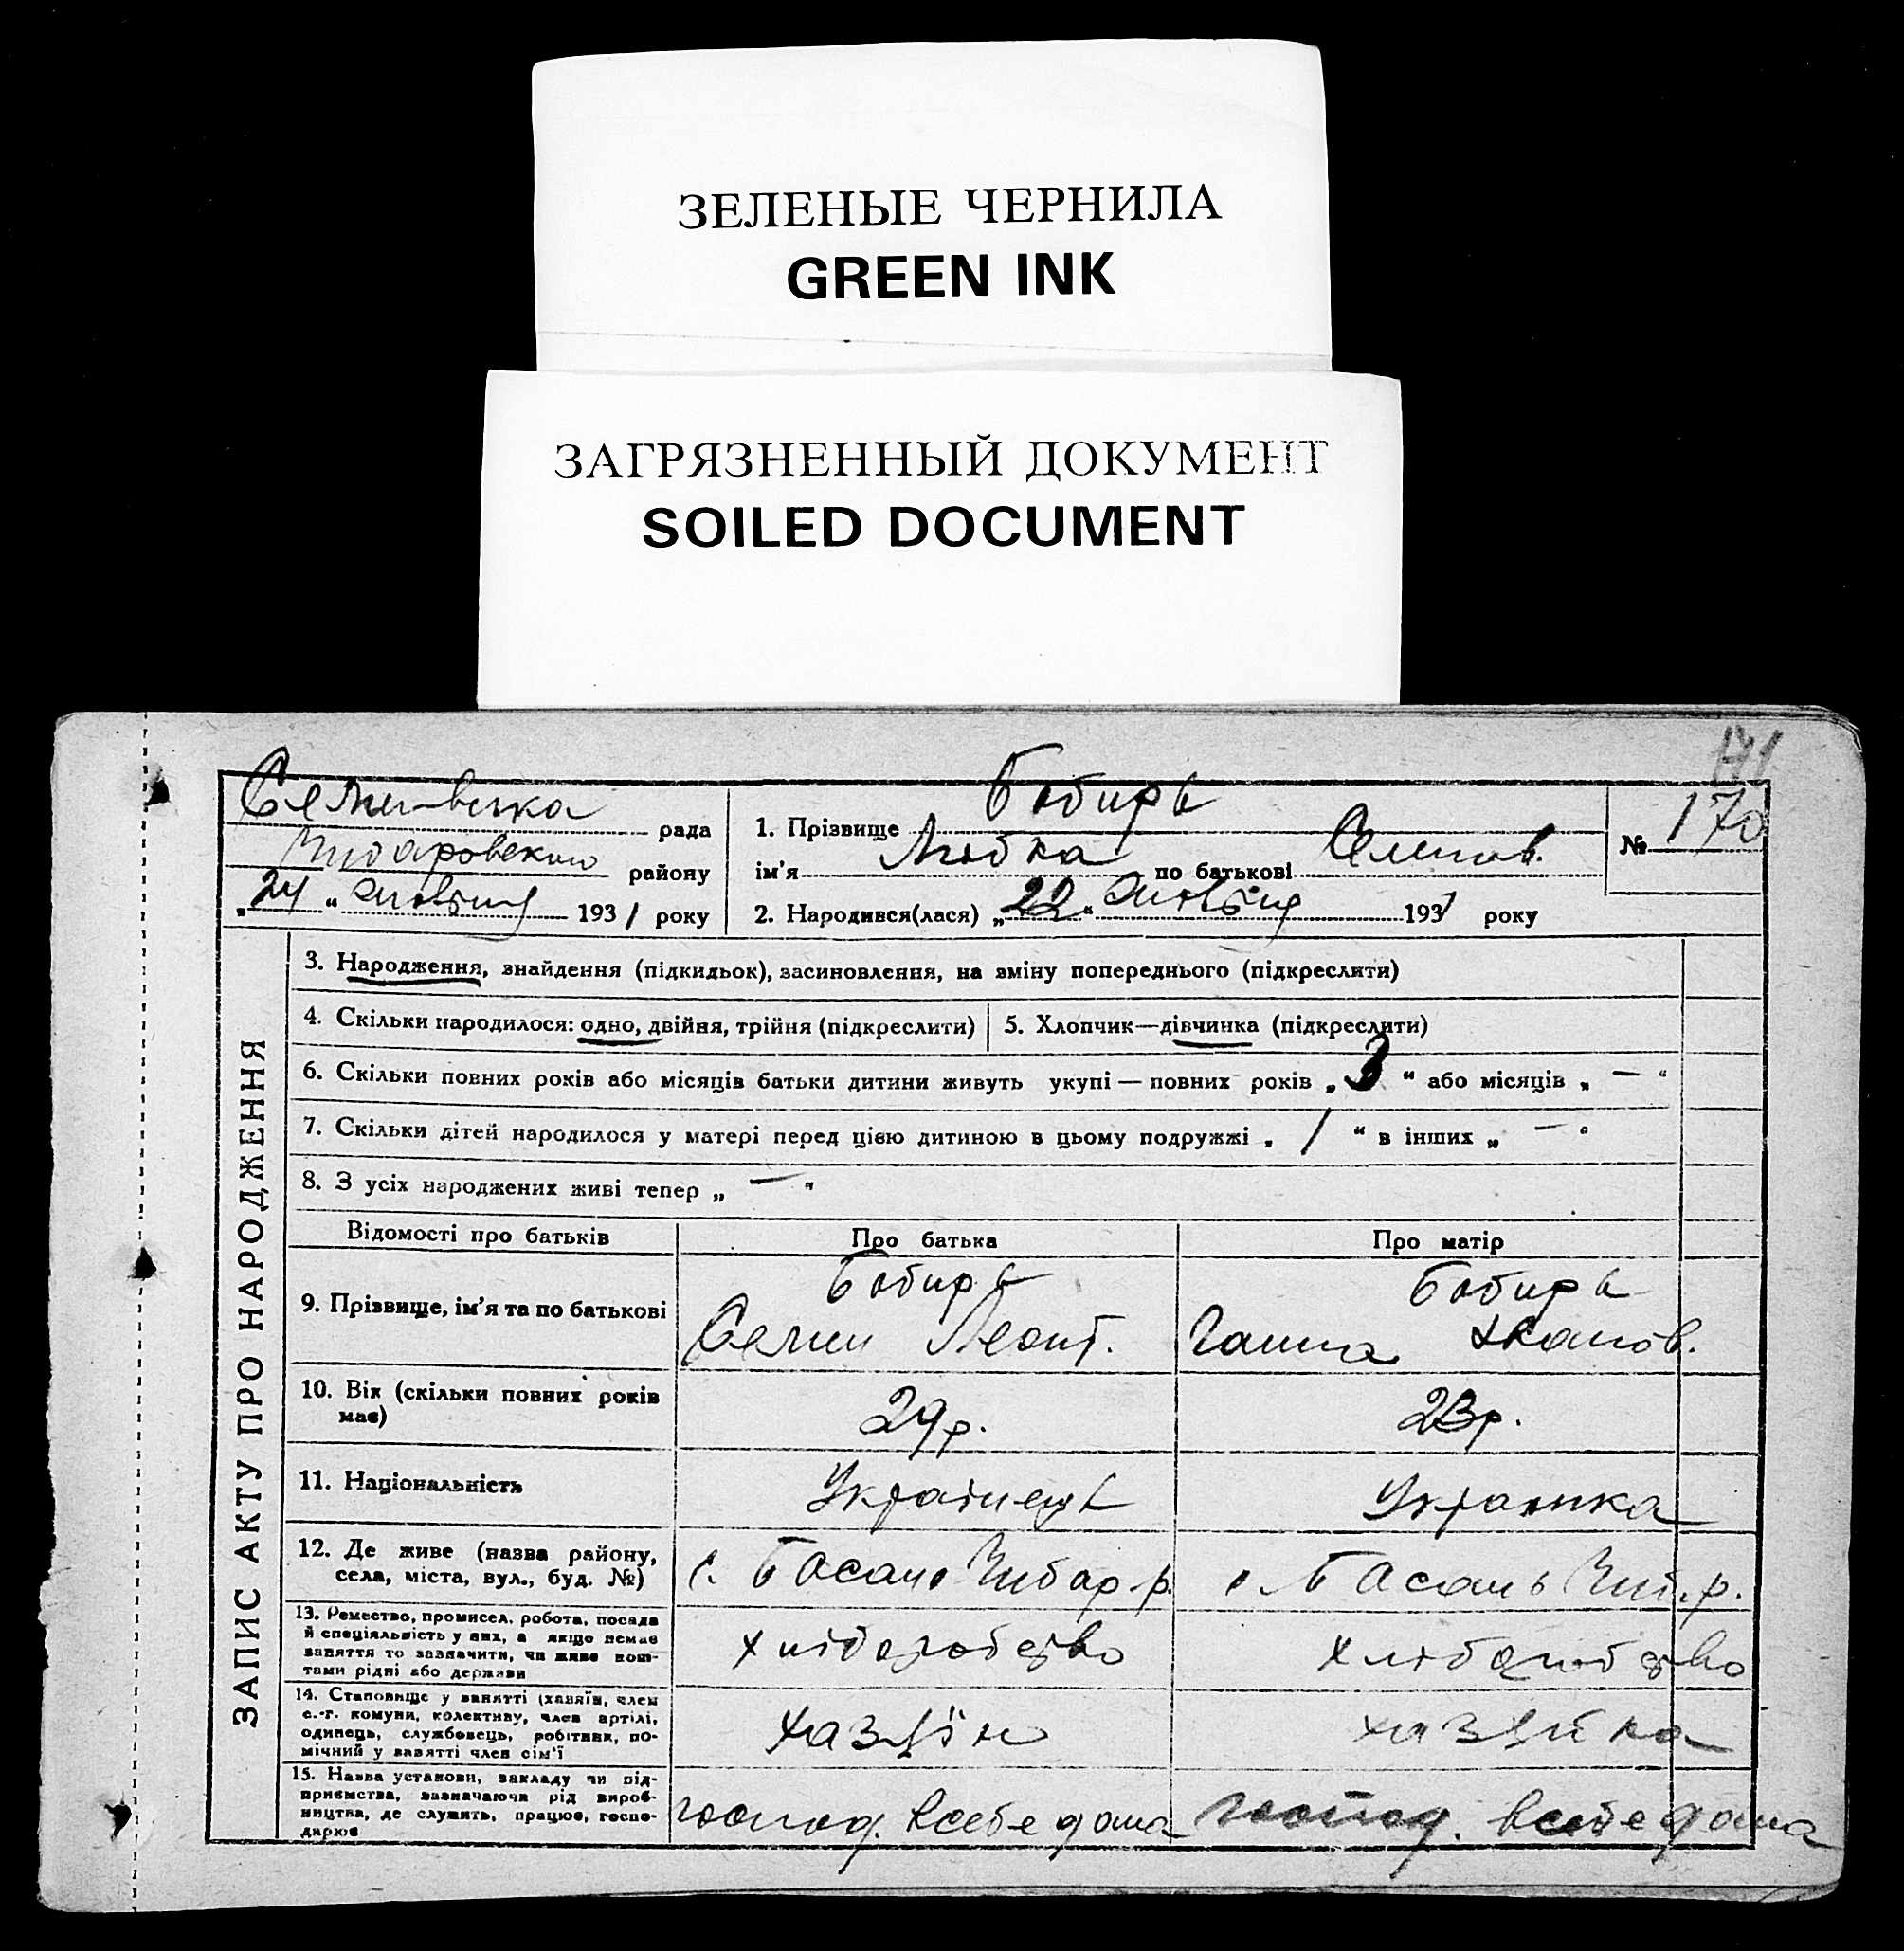 ЗЕЛЕНЫЕ ЧЕРНИЛА
GREEN INK
ЗАГРЯЗНЕННЫЙ ДОКУМЕНТ
SOILED DOCUMENT
рада
району
„24“ 1931 року
1. Прізвище Бобирь
ім'я Любка по батькові Семенов.
2. Народився(лася) „22“ 1931 року
№ 170
ЗАПИС АКТУ ПРО НАРОДЖЕННЯ
3. Народження, знайдення (підкидьок), засиновлення, на зміну попереднього (підкреслити)
4. Скільки народилося: одно, двійня, трійня (підкреслити)
5. Хлопчик—дівчинка (підкреслити)
6. Скільки повних років або місяців батьки дитини живуть укупі — повних років „3“ або місяців „—“
7. Скільки дітей народилося у матері перед цією дитиною в цьому подружжі „1“ в інших „—“
8. З усіх народжених живі тепер „—“
Відомості про батьків Про батька Про матір
9. Прізвище, ім'я та по батькові
Бобирь
Семен Леонт.
Бобирь
Ганна
10. Вік (скільки повних років має)
29р.
23р.
11. Національність
Українець
Українка
12. Де живе (назва району,
села, міста, вул., буд. №)
с. Басань Чубар р.
с. Басань Чуб. р.
13. Ремество, промисел, робота, посада
й спеціяльність у них, а якщо немає
заняття то зазначити, чи живе кош-
тами рідні або держави
хліборобство
хліборобство
14. Становище у занятті (хазяїн, член
с.-г. комуни, колективу, член артілі,
одинець, службовець, робітник, по-
мічний у занятті член сім'ї
хазяїн
хазяйка
15. Назва установи, закладу чи під-
приємства, зазначаючи рід вироб-
ництва, де служить, працює, госпо-
дарює
господ. в себе дома
господ. в себе дома